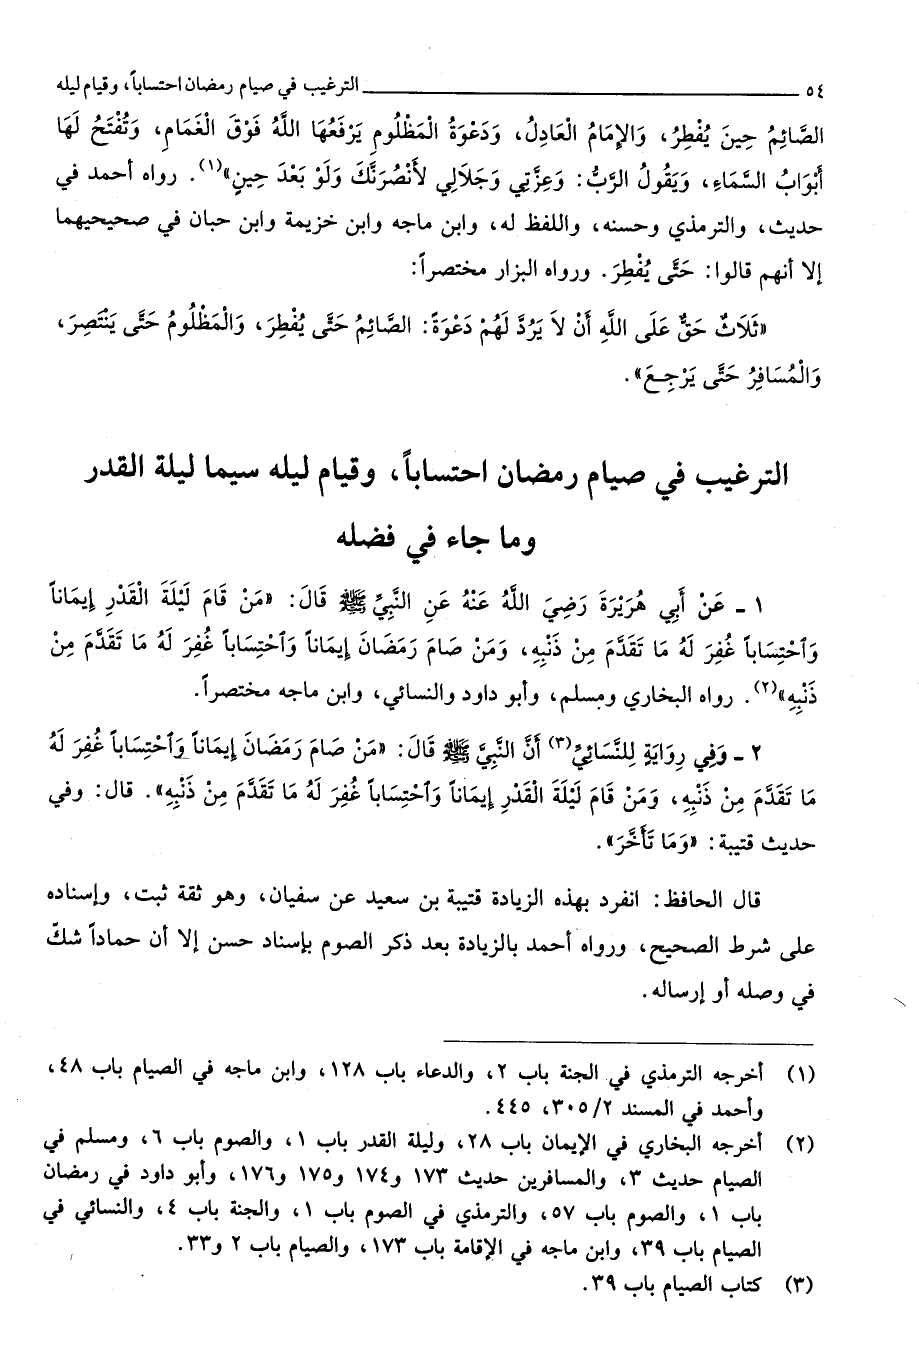 ٥٤ ــــــــــــــــــــ الترغيب في صيام رمضان احتساباً، وقيام ليله
الصَّائِمُ حِينَ يُفْطِرُ، وَالإِمَامُ الْعَادِلُ، وَدَعْوَةُ الْمَظْلُومِ يَرْفَعُهَا اللَّهُ فَوْقَ الْغَمَامِ، وَتُفْتَحُ لَهَا
أَبْوَابُ السَّمَاءِ، وَيَقُولُ الرَّبُّ: وَعِزَّتِي وَجَلَالِي لأَنْصُرَنَّكَ وَلَوْ بَعْدَ حِينٍ»(١). رواه أحمد في
حديث، والترمذي وحسنه، واللفظ له، وابن ماجه وابن خزيمة وابن حبان في صحيحيهما
إلا أنهم قالوا: حَتَّى يُفْطِرَ. ورواه البزار مختصراً:
«ثَلَاثٌ حَقٌّ عَلَى اللَّهِ أَنْ لاَ يَرُدَّ لَهُمْ دَعْوَةً: الصَّائِمُ حَتَّى يُفْطِرَ، وَالْمَظْلُومُ حَتَّى يَنْتَصِرَ،
وَالْمُسَافِرُ حَتَّى يَرْجِعَ».
الترغيب في صيام رمضان احتساباً، وقيام ليله سيما ليلة القدر
وما جاء في فضله
١ ـ عَنْ أَبِي هُرَيْرَةَ رَضِيَ اللَّهُ عَنْهُ عَنِ النَّبِيِّ ﷺ قَالَ: «مَنْ قَامَ لَيْلَةَ الْقَدْرِ إِيمَاناً
وَٱحْتِسَاباً غُفِرَ لَهُ مَا تَقَدَّمَ مِنْ ذَنْبِهِ، وَمَنْ صَامَ رَمَضَانَ إِيمَاناً وَٱحْتِسَاباً غُفِرَ لَهُ مَا تَقَدَّمَ مِنْ
ذَنْبِهِ»(٢). رواه البخاري ومسلم، وأبو داود والنسائي، وابن ماجه مختصراً.
٢ ـ وَفِي رِوَايَةٍ لِلنَّسَائِيِّ(٣) أَنَّ النَّبِيَّ ﷺ قَالَ: «مَنْ صَامَ رَمَضَانَ إِيمَاناً وَٱحْتِسَاباً غُفِرَ لَهُ
مَا تَقَدَّمَ مِنْ ذَنْبِهِ، وَمَنْ قَامَ لَيْلَةَ الْقَدْرِ إِيمَاناً وَٱحْتِسَاباً غُفِرَ لَهُ مَا تَقَدَّمَ مِنْ ذَنْبِهِ». قال: وفي
حديث قتيبة: «وَمَا تَأَخَّرَ».
قال الحافظ: انفرد بهذه الزيادة قتيبة بن سعيد عن سفيان، وهو ثقة ثبت، وإسناده
على شرط الصحيح، ورواه أحمد بالزيادة بعد ذكر الصوم بإسناد حسن إلا أن حماداً شكّ
في وصله أو إرساله.
(١) أخرجه الترمذي في الجنة باب ٢، والدعاء باب ١٢٨، وابن ماجه في الصيام باب ٤٨،
وأحمد في المسند ٣٠٥/٢، ٤٤٥.
(٢) أخرجه البخاري في الإيمان باب ٢٨، وليلة القدر باب ١، والصوم باب ٦، ومسلم في
الصيام حديث ٣، والمسافرين حديث ١٧٣ و١٧٤ و١٧٥ و١٧٦، وأبو داود في رمضان
باب ١، والصوم باب ٥٧، والترمذي في الصوم باب ١، والجنة باب ٤، والنسائي في
الصيام باب ٣٩، وابن ماجه في الإقامة باب ١٧٣، والصيام باب ٢ و٣٣.
(٣) كتاب الصيام باب ٣٩.